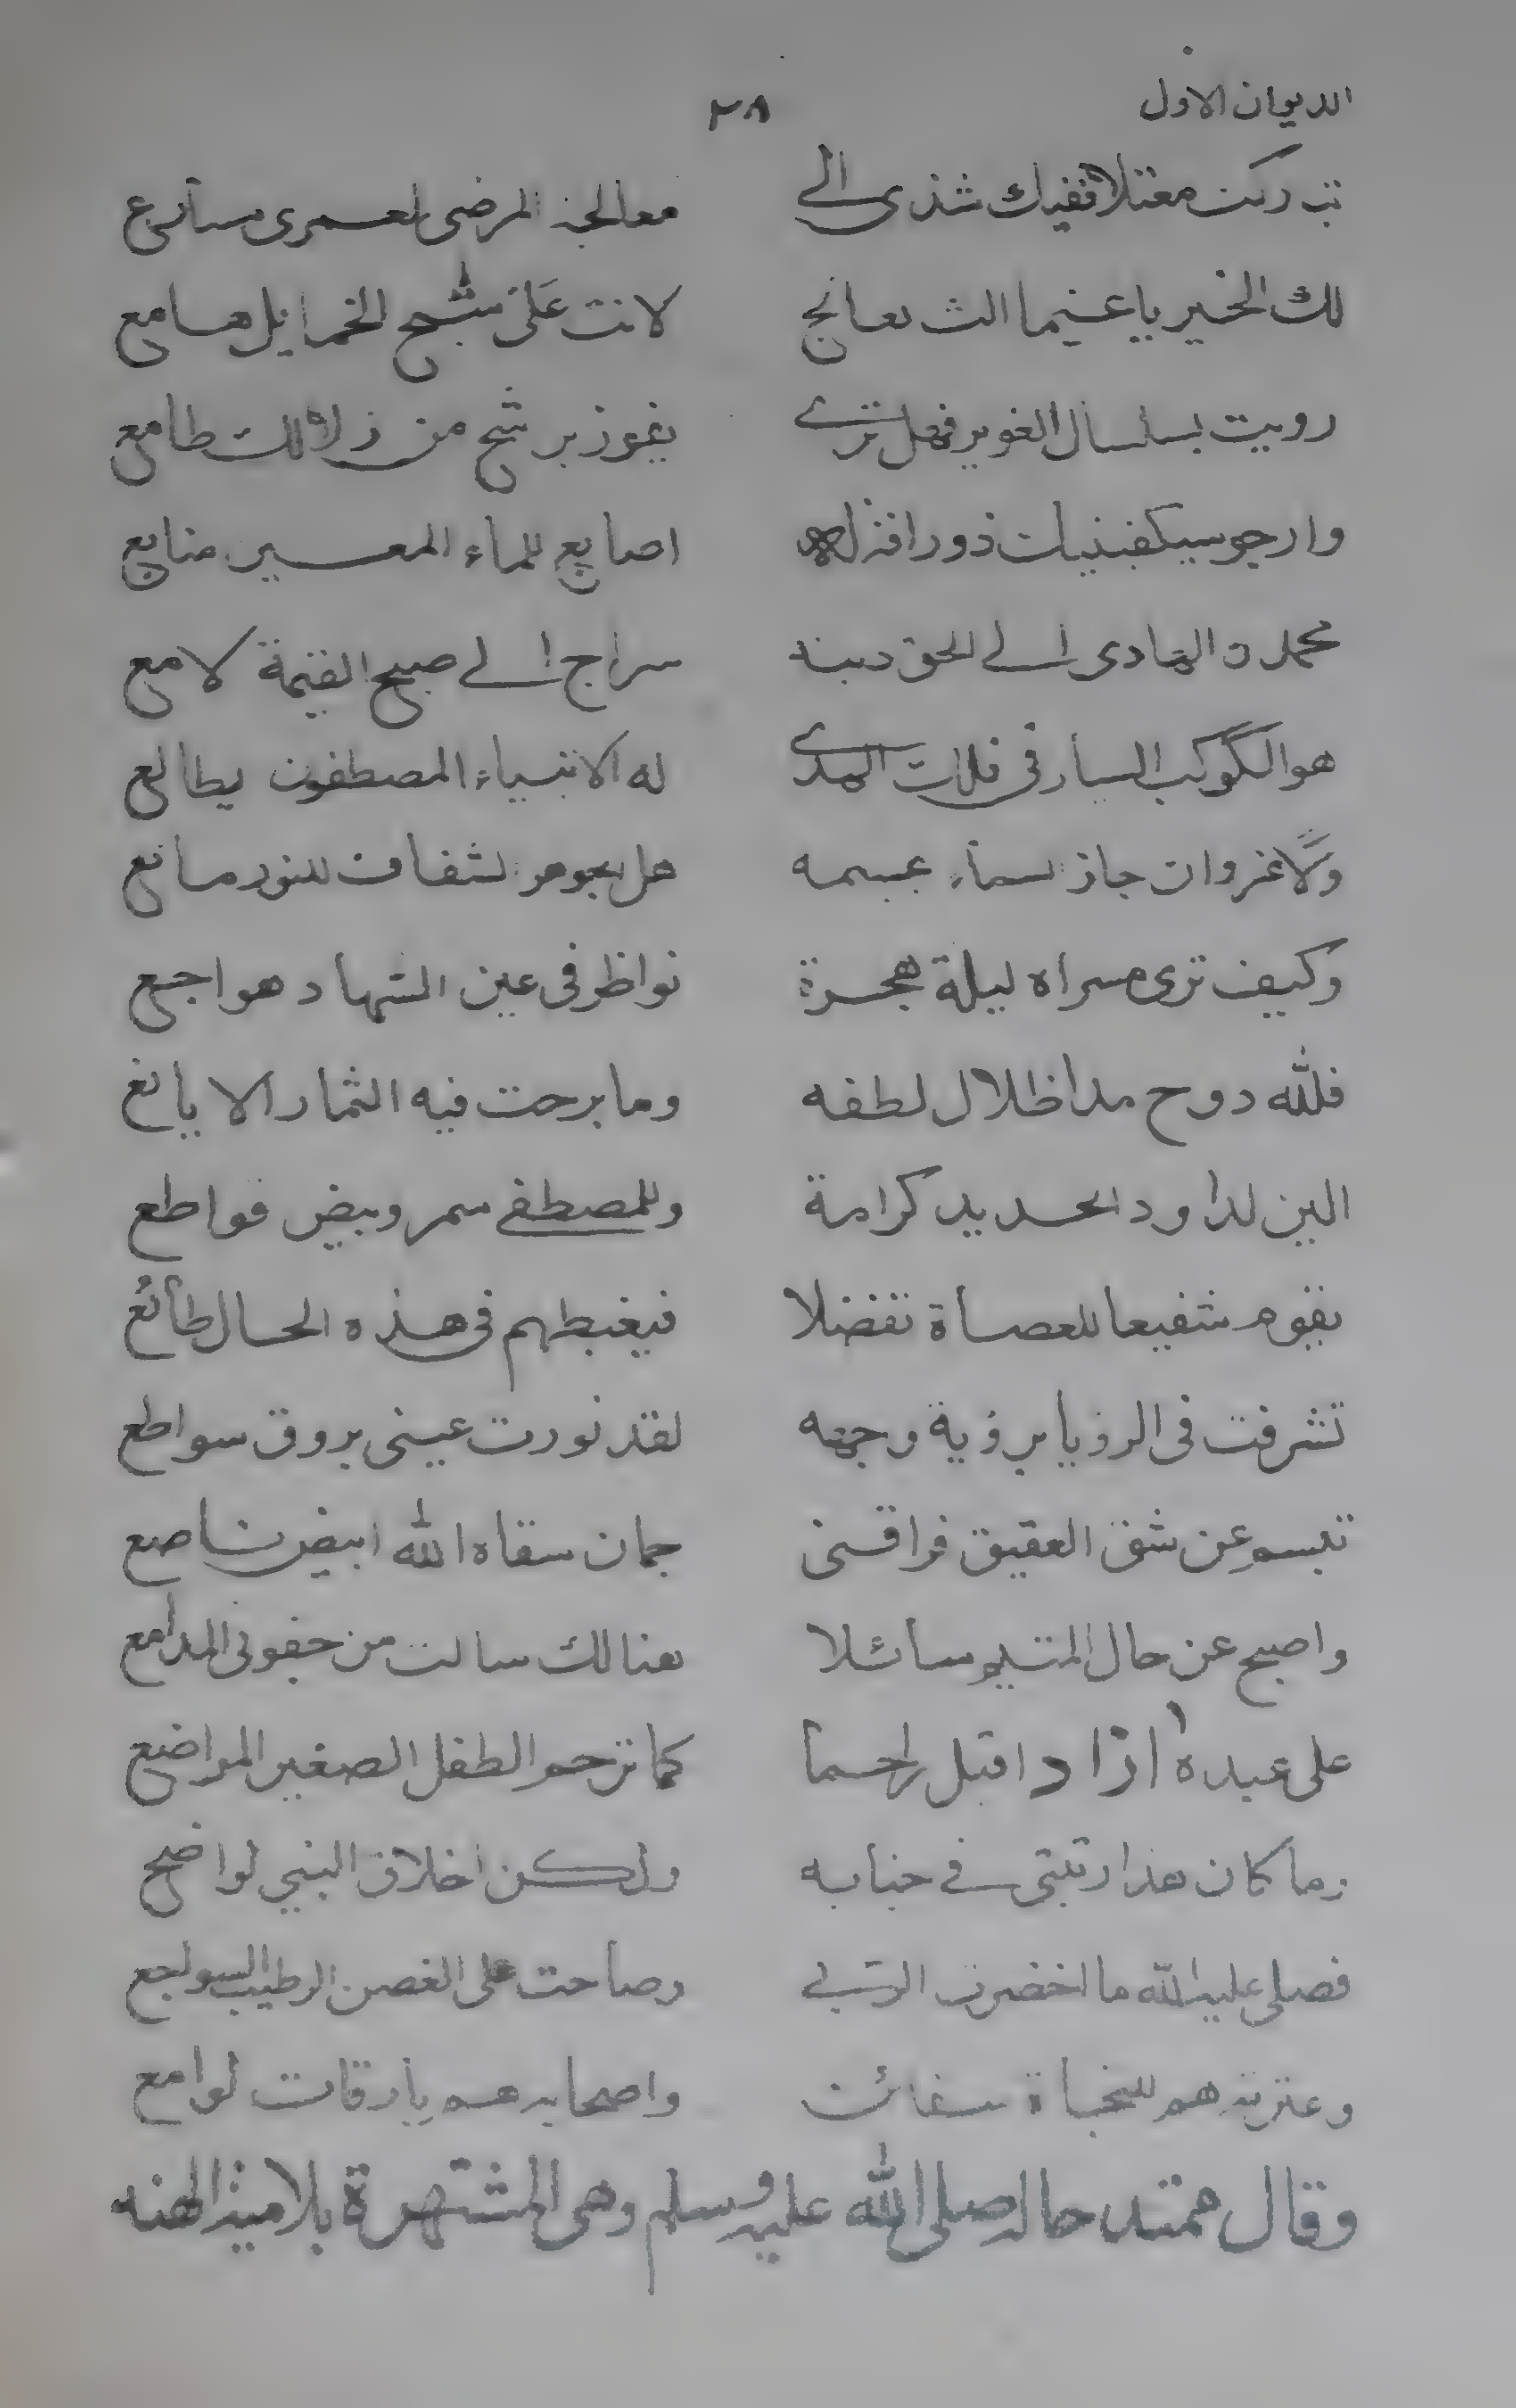 الديوان الاول ٢٨
تداركت معتلا ففيك شذى الى معالجة المرضى لعمرى مسارع
لك الخير يا غيما الث لعالج لانت على شبح الخمايل هامع
رويت بسلسال الغوير فهل ترى يفوز برشح من زلالك طامع
وارجو سيكفينيك ذو رافة له اصابع للماء المعين منابع
محمدن الهادى الى الحق دينه سراج الى صبح القيمة لامع
هو الكوكب السيار فى فلك الهدى له الانبياء المصطفون يطالع
ولا غروان جاز السماء بجسمه هل الجوهر الشفاف للنور مانع
وكيف ترى مسراه ليلة هجرة نواظر فى عين السهاد هواجع
فلله دوح مد اظلال لطفه وما برحت فيه الثمار الا يانع
الين لداود الحديد كرامة وللمصطفى سمر وبيض قواطع
يقوم شفيعا للعصاة تفضلا فيغبطهم فى هذه الحال طائع
تشرفت فى الرؤيا برؤية وجهه لقد نورت عينى بروق سواطع
تبسم عن شق العقيق فراقنى جمان سقاه الله ابيض ناصع
واصبح عن حال المتيم سائلا هنالك سالت من جفونى المدامع
على عبده ازاد اقبل راحما كما ترحم الطفل الصغير المراضع
وما كان هذا رتبتى فى جنابه ولكن اخلاق النبي لواضح
فصلى عليه الله ما اخضرت الربى وصاحت على الغصن الرطيب السواجع
وعترته هم للنجاة سفائن واصحابه هم بارقات لوامع
وقال يمتدحه صلى الله عليه وسلم وهى المشتهرة بلامية الهند